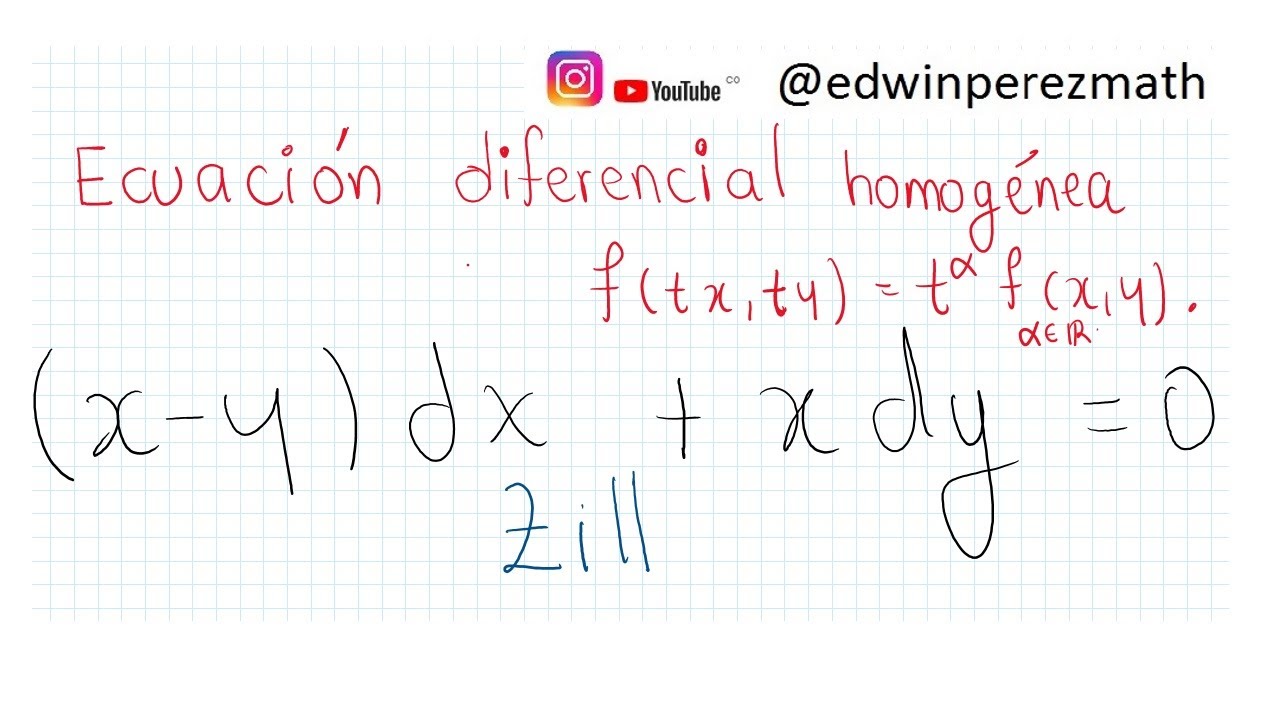 YouTube CO @edwinperezmath
Ecuación diferencial homogénea
f(tx,ty) = t^α f(x,y).
α∈ℝ.
(x-y) dx + x dy = 0
Zill